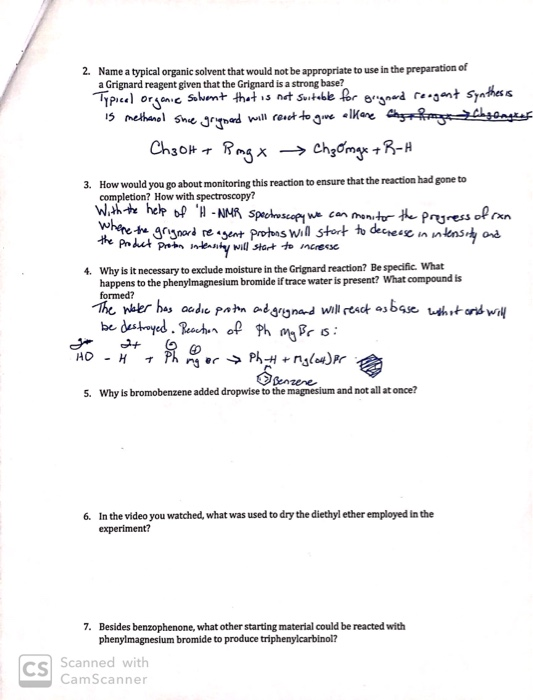 2. Name a typical organic solvent that would not be appropriate to use in the preparation of
a Grignard reagent given that the Grignard is a strong base?
Typical organic solvent that is not suitable for grignard reagent synthesis
is methanol since grynard will react to give alkane
Ch3OH + Rmgx → Ch3Omgx + R-H
3. How would you go about monitoring this reaction to ensure that the reaction had gone to
completion? How with spectroscopy?
With the help of 'H-NMR spectroscopy we can monitor the progress of rxn
where the grignord reagent protons will start to decrease in intensity and
the product proton intensity will start to increase
4. Why is it necessary to exclude moisture in the Grignard reaction? Be specific. What
happens to the phenylmagnesium bromide if trace water is present? What compound is
formed?
The water has acidic proton and grignard will react as base with it and will
be destroyed. Reaction of Ph MgBr is:
HO - H + Ph mg Br → Ph-H + Mg(OH)Br
Benzene
5. Why is bromobenzene added dropwise to the magnesium and not all at once?
6. In the video you watched, what was used to dry the diethyl ether employed in the
experiment?
7. Besides benzophenone, what other starting material could be reacted with
phenylmagnesium bromide to produce triphenylcarbinol?
CS Scanned with
CamScanner